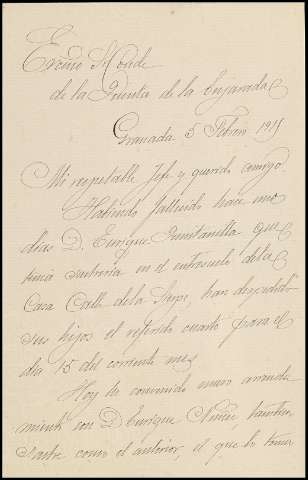 Excmo Sr Conde
de la Quinta de la Enjarada
Granada 5 Febro 1915
Mi respetable Jefe y querido amigo.
Habiendo fallecido hace unos
dias D. Enrique que
tenia sastreria en el entresuelo de la
Casa Calle de la han despedido
sus hijos el referido cuarto para el
dia 15 del corriente mes
Hoy he convenido nuevo arrenda
miento con D Enrique Nuñez, tambien
sastre como el anterior, el que lo toma